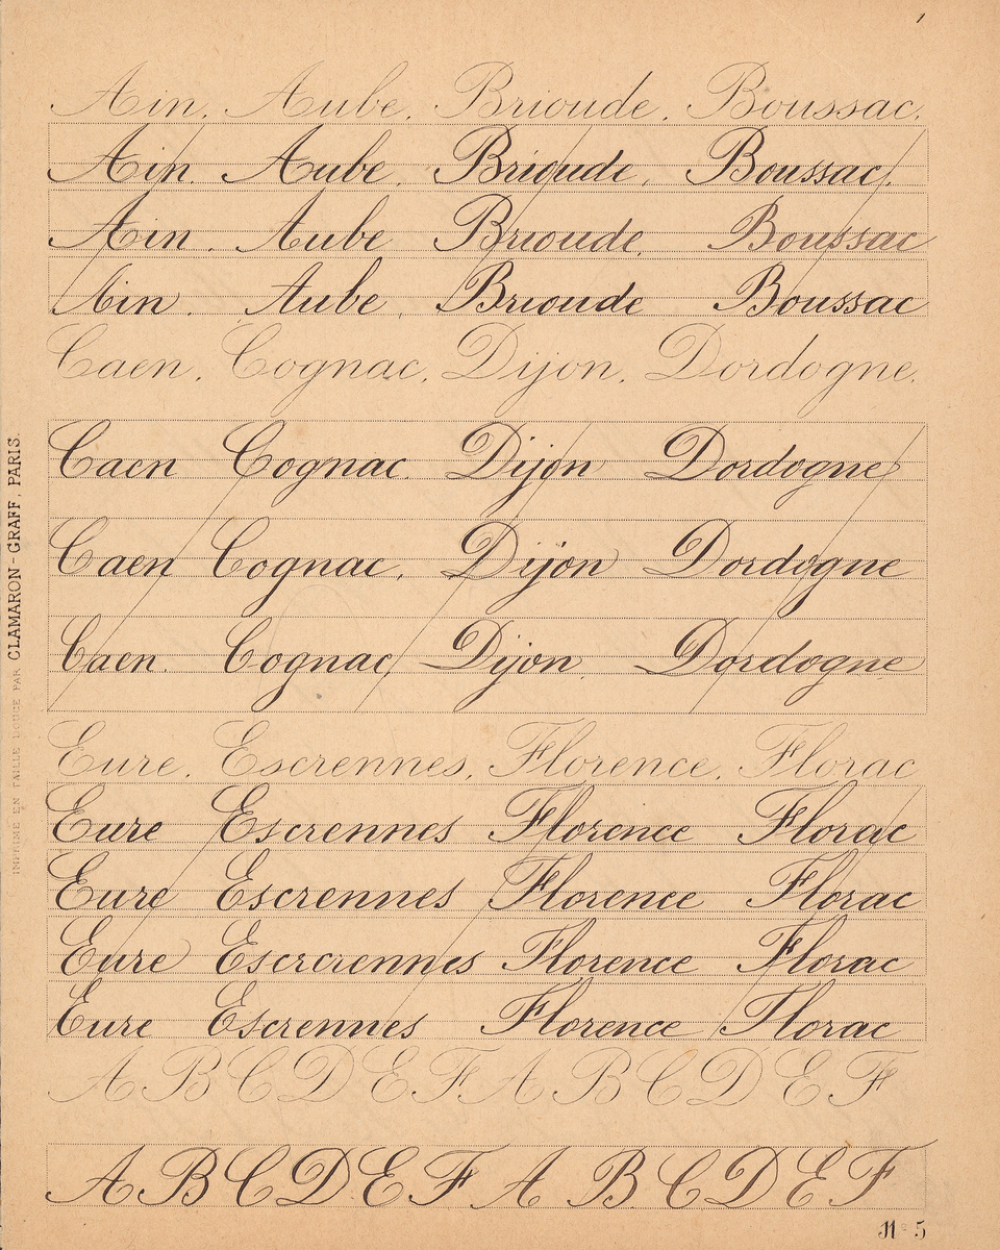 1
Ain. Aube. Brioude. Boussac.
Ain. Aube. Brioude. Boussac.
Ain. Aube Brioude. Boussac
Ain. Aube. Brioude Boussac
Caen. Cognac. Dijon. Dordogne.
Caen Cognac. Dijon Dordogne
Caen Cognac. Dijon Dordogne
Caen. Cognac Dijon. Dordogne
Eure. Escrennes. Florence. Florac
Eure Escrennes Florence Florac
Eure Escrennes Florence Florac
Eure Escrcrennes Florence Florac
Eure Escrennes Florence Florac
A B C D E F A B C D E F
A B C D E F A B. C D E F
N° 5
IMPRIMÉ EN TAILLE DOUCE PAR CLAMARON-GRAFF, PARIS.